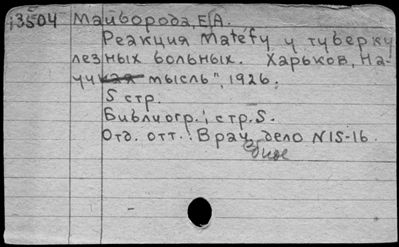 13504 Майборода, Е.А.
Реакция Matefy у туберку
лезных больных. Харьков, На-
учная мысль", 1926.
5 стр.
Библиогр.: стр. 5.
Отд. отт.: Врач. дело N 15-16.